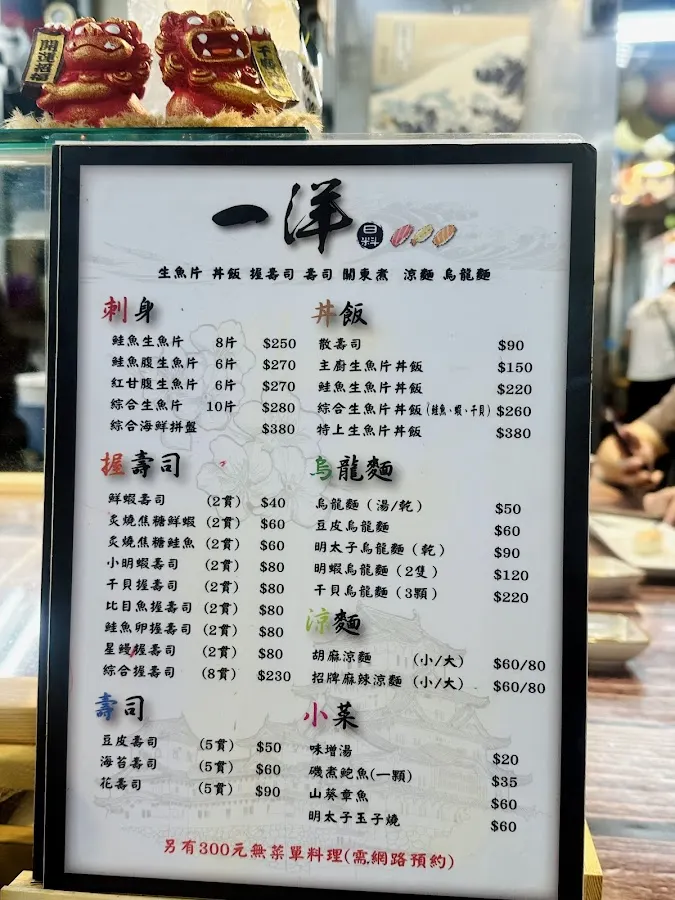 開運招福
一洋 日料
生魚片 丼飯 握壽司 壽司 關東煮 涼麵 烏龍麵
刺身
鮭魚生魚片 8片 $250
鮭魚腹生魚片 6片 $270
紅甘腹生魚片 6片 $270
綜合生魚片 10片 $280
綜合海鮮拼盤 $380
握壽司
鮮蝦壽司 (2貫) $40
炙燒焦糖鮮蝦 (2貫) $60
炙燒焦糖鮭魚 (2貫) $60
小明蝦壽司 (2貫) $80
干貝握壽司 (2貫) $80
比目魚握壽司 (2貫) $80
鮭魚卵握壽司 (2貫) $80
星鰻握壽司 (2貫) $80
綜合握壽司 (8貫) $230
壽司
豆皮壽司 (5貫) $50
海苔壽司 (5貫) $60
花壽司 (5貫) $90
丼飯
散壽司 $90
主廚生魚片丼飯 $150
鮭魚生魚片丼飯 $220
綜合生魚片丼飯(鮭魚、蝦、干貝) $260
特上生魚片丼飯 $380
烏龍麵
烏龍麵(湯/乾) $50
豆皮烏龍麵 $60
明太子烏龍麵(乾) $90
明蝦烏龍麵(2隻) $120
干貝烏龍麵(3顆) $220
涼麵
胡麻涼麵 (小/大) $60/80
招牌麻辣涼麵 (小/大) $60/80
小菜
味增湯 $20
磯煮鮑魚(一顆) $35
山葵章魚 $60
明太子玉子燒 $60
另有300元無菜單料理(需網路預約)